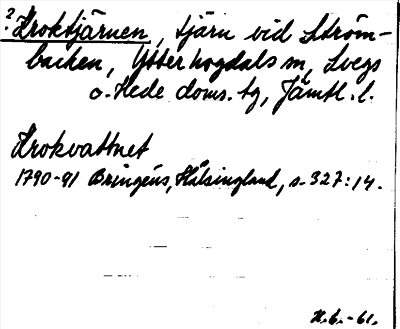 ? Kroktjärnen, tjärn vid Ström-
backen, Ytterhogdals sn, Svegs
o. Hede doms. tg, Jämtl. l.
Krokvattnet
1790-91 Bringéus, Hälsingland, s. 327:14.
H.G.-61.